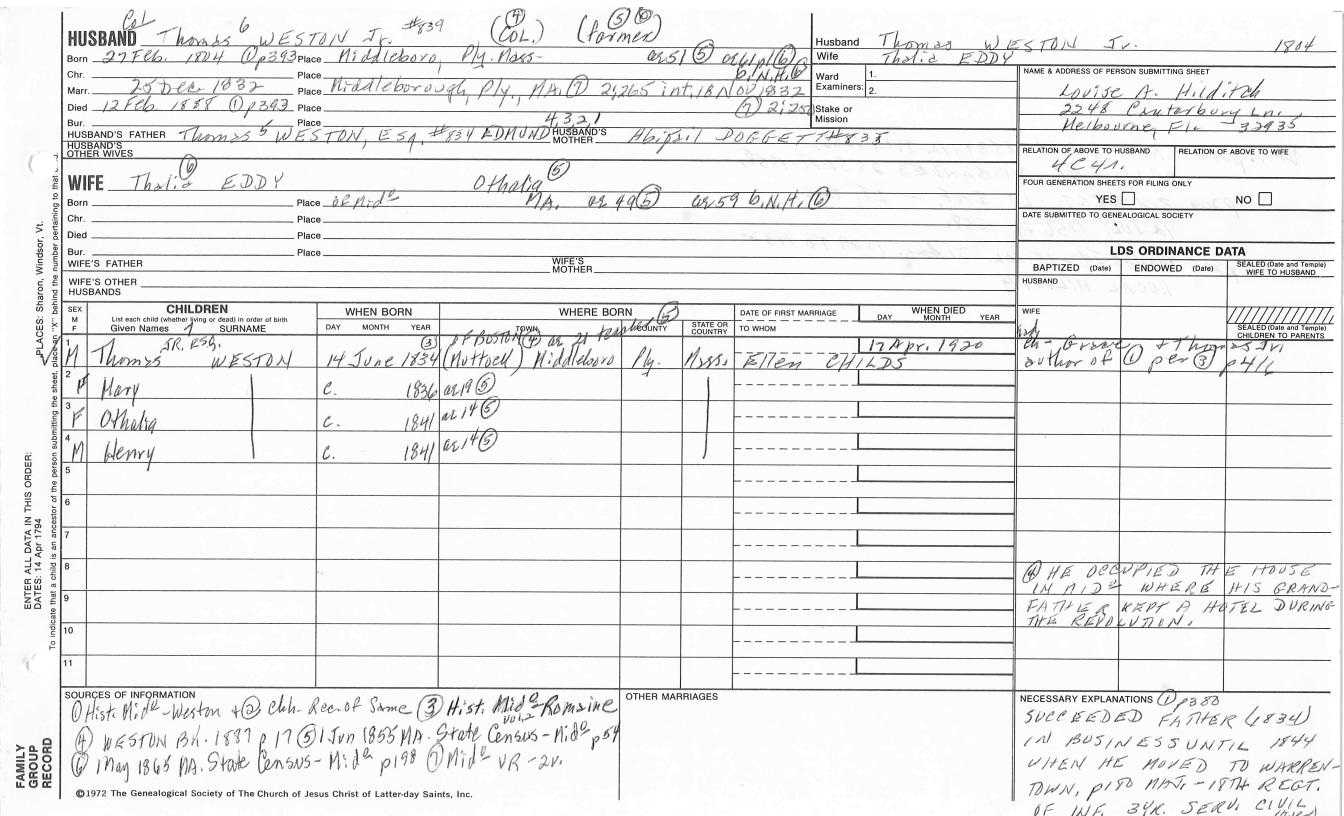 Col
HUSBAND Thomas 6 WESTON Jr. #839 (④ COL.) (⑤ ⑥ farmer)
Born 27 Feb. 1804 ① p393 Place Middleboro, Ply. Mass- ae 51 ⑤ ae 61 p1 ⑥
b.N.H. ⑥
Chr. Place
Marr. 25 Dec 1832 Place Middleborough, Ply., MA. ⑦ 2;265 int. 18 NOV 1832
Died 12 Feb. 1888 ① p393 Place ⑦ 2;252
Bur. Place 4,3,2,1
HUSBAND'S FATHER Thomas 5 WESTON, ESQ. #834 EDMUND HUSBAND'S MOTHER Abigail DOGGETT #835
HUSBAND'S OTHER WIVES
WIFE Thalia ⑥ EDDY Othalia ⑤
Born Place of Mid° MA. ae 49 ⑤ ae 59 b.N.H. ⑥
Chr. Place
Died Place
Bur. Place
WIFE'S FATHER WIFE'S MOTHER
WIFE'S OTHER HUSBANDS
Husband Thomas WESTON Jr. 1804
Wife Thalia EDDY
Ward Examiners: 1. 2.
Stake or Mission
NAME & ADDRESS OF PERSON SUBMITTING SHEET
Louise A. Hilditch
2248 Canterbury Ln.
Melbourne, Fl. 32935
RELATION OF ABOVE TO HUSBAND RELATION OF ABOVE TO WIFE
4C4r.
FOUR GENERATION SHEETS FOR FILING ONLY
YES NO
DATE SUBMITTED TO GENEALOGICAL SOCIETY
LDS ORDINANCE DATA
BAPTIZED (Date) ENDOWED (Date) SEALED (Date and Temple) WIFE TO HUSBAND
HUSBAND
WIFE
SEALED (Date and Temple) CHILDREN TO PARENTS
SEX M F CHILDREN WHEN BORN WHERE BORN DATE OF FIRST MARRIAGE WHEN DIED
List each child (whether living or dead) in order of birth
Given Names SURNAME DAY MONTH YEAR TOWN COUNTY STATE OR COUNTRY TO WHOM DAY MONTH YEAR
OF BOSTON ④ ae 21 ⑤
1 M Thomas JR. ESQ. WESTON 14 June 1834 ③ (Muttock) Middleboro Ply. Mass. Ellen CHILDS 17 Apr. 1920
ch- Grace + Thomas Jr.
author of ① per ③ p416
2 F Mary c. 1836 ae 19 ⑤
3 F Othalia c. 1841 ae 14 ⑤
4 M Henry c. 1841 ae 14 ⑤
5
6
7
8
9
10
11
④ HE OCCUPIED THE HOUSE
IN MID° WHERE HIS GRAND-
FATHER KEPT A HOTEL DURING
THE REVOLUTION.
SOURCES OF INFORMATION
① Hist. Mid°-Weston + ② Chh. Rec. of Same ③ Hist. Mid°-Romaine vol. 2
④ WESTON BK. 1887 p 17 ⑤ 1 Jun 1855 MA. State Census-Mid° p54
⑥ 1 May 1865 MA. State Census-Mid° p198 ⑦ Mid° VR -2v.
OTHER MARRIAGES
NECESSARY EXPLANATIONS ① p388
SUCCEEDED FATHER (1834)
IN BUSINESS UNTIL 1844
WHEN HE MOVED TO WARREN-
TOWN, p180 MAJ. -18TH REGT.
OF INF. 3 YR. SERV. CIVIL
©1972 The Genealogical Society of The Church of Jesus Christ of Latter-day Saints, Inc.
FAMILY GROUP RECORD
ENTER ALL DATA IN THIS ORDER:
DATES: 14 Apr 1794
PLACES: Sharon, Windsor, Vt.
To indicate that a child is an ancestor of the person submitting the sheet, place an "X" behind the number pertaining to that